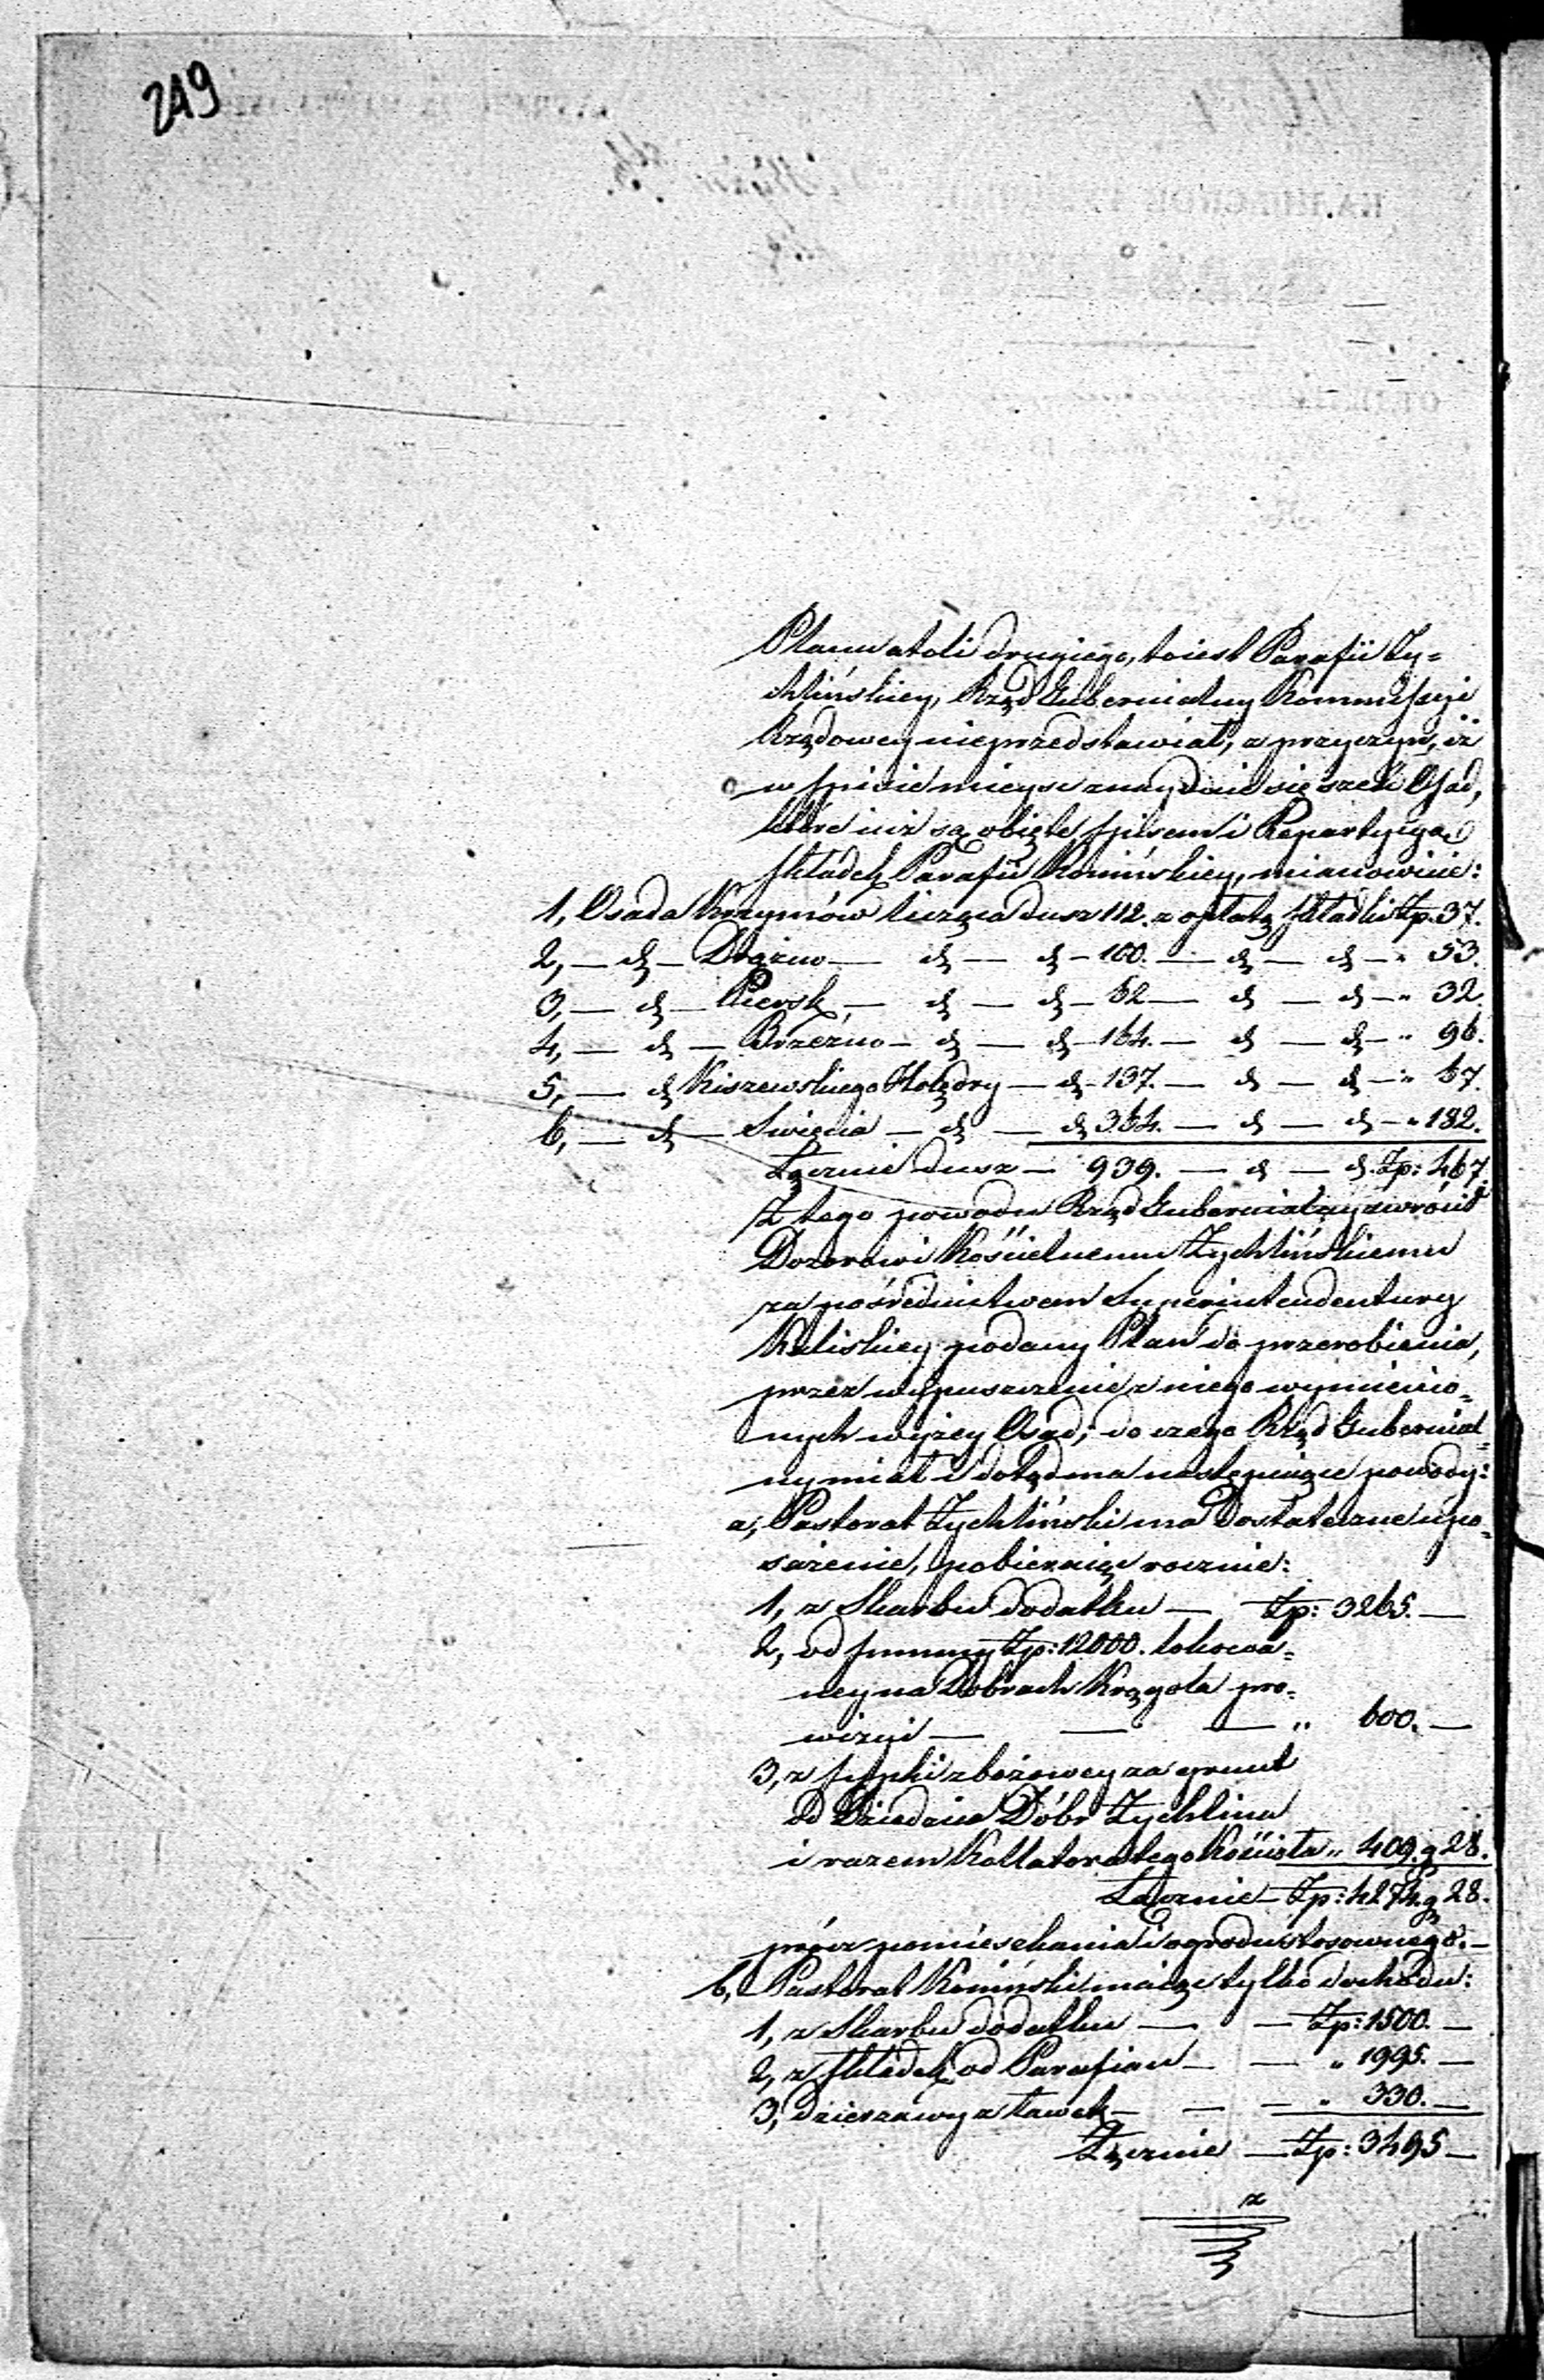 249
Planu atoli drugiego, toiest Parafii Ży=
chlińskiey, Rząd Gubernialny Kommissyi
Rządowey nieprzedstawiał, z przyczyn, iż
w spisie mieysc znayduie się sześć Osad,
które iuż są obięte spisem i Repartycyą
składek Parafii Konińskiey, mianowicie:
1, Osada Krzymów licząca dusz 112. z opłatą składki Zp. 37.
2, — dº — Drążno — dº — dº — 100. — dº — dº — " 53.
3, — dº — Piersk, — dº — dº — 62 — dº — dº — " 32.
4, — dº — Brzezno — dº — dº — 164. — dº — dº — " 96.
5, — dº Kiszewskiego Holędry — dº — 137. — dº — dº — " 67.
6, — dº — Swięcia — dº — dº 364. — dº — dº — " 182.
Łącznie dusz — 939. — dº — dº. Zp: 467.
Z tego powodu Rząd Gubernialny zwrócił
Dozorowi Kościelnemu Żychlińskiemu
za pośrednictwem Superintendentury
Kaliskiey podany Plan do przerobienia,
przez wypuszczenie z niego wymienio=
nych wyżey Osad; do czego Rząd Gubernial=
ny miał i dotąd ma następuiące powody:
a, Pastorat Żychliński ma dostateczne upo=
sażenie, pobieraiąc rocznie:
1, z Skarbu dodatku — Zp: 3265. —
2, od summy Zp: 12000. lokowa=
ney na Dobrach Krągola pro=
wizyi — — — " 600. —
3, z sypki zbożowey za grunt
od Dziedzica Dóbr Żychlina
i razem Kollatora tego Kościoła " 409. g 28.
Łącznie — Zp: 4274. g 28.
prócz pomieszkania i ogrodu stosownego. —
b, Pastorat Koniński maiąc tylko dochodu:
1, z Skarbu dodatku — — Zp: 1500. —
2, z składek od Parafian — — " 1995. —
3, dzierzawy z ławek — — — " 330. —
Łącznie — Zp: 3495 —
z